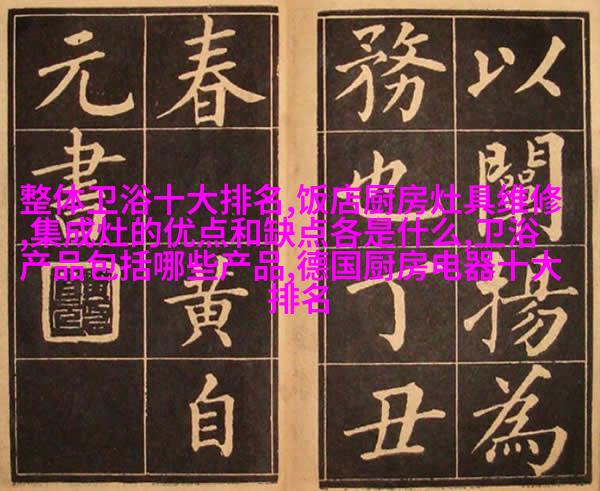 以闡揚為
務也丁丑
春黄自
元書
整体卫浴十大排名,饭店厨房灶具维修
,集成灶的优点和缺点各是什么,卫浴
产品包括哪些产品,德国厨房电器十大
排名